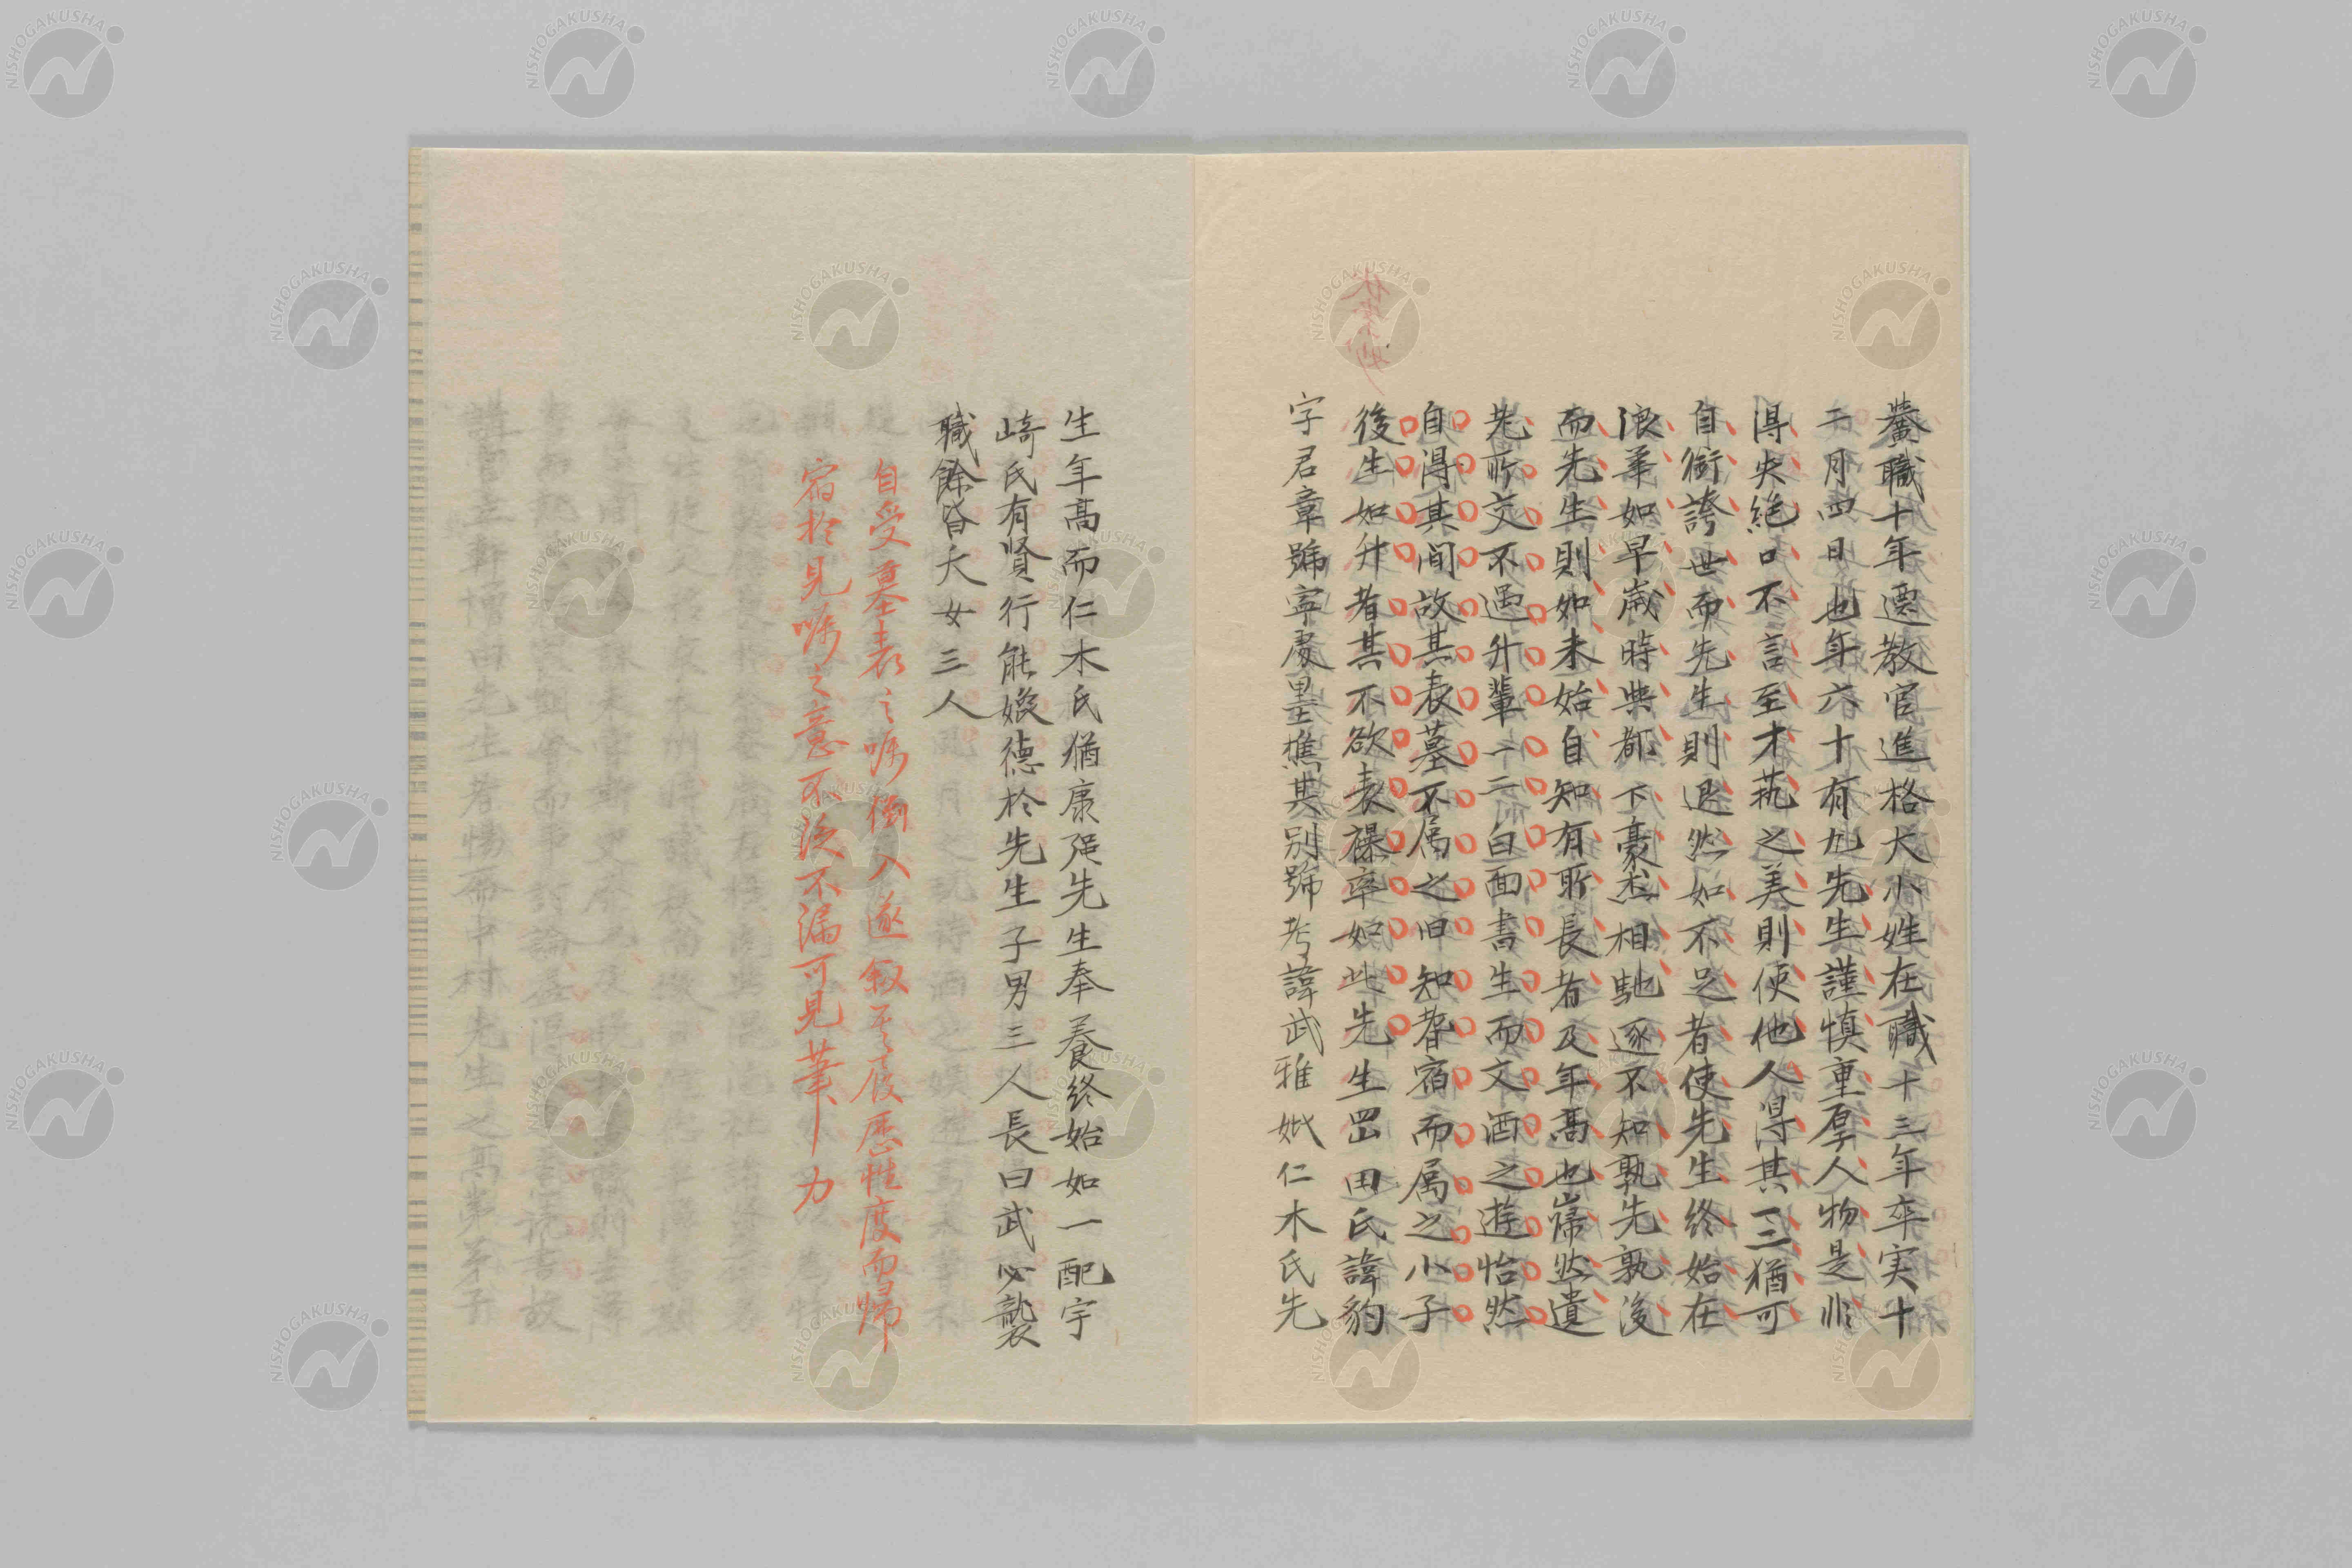 黌職十年遷教官進格大小姓在職十三年卒実十
二月四日也年六十有九先生謹慎重厚人物是非
得失絶口不言至才芸之美則使他人得其一二猶可
自衒誇世而先生則退然如不足者使先生終始在
浪華如早歳時与都下豪杰相馳逐不知孰先孰後
而先生則如未始自知有所長者及年高也巋然遺
老所交不過升輩一二白面書生而文酒之遊怡然
自得其間故其表墓不属之旧知耆宿而属之小子
後生如升者其不欲表襮率如此先生岡田氏諱豹
字君章号寧処墨樵其別号考諱武雅妣仁木氏先
生年高而仁木氏猶康强先生奉養終始如一配宇
崎氏有賢行能媲德於先生子男三人長曰武必襲
職餘皆夭女三人
自受墓表之嘱倒入遂叙其履歴性度而帰
宿於見嘱之意不泛不漏可見筆力
NISHOGAKUSHA